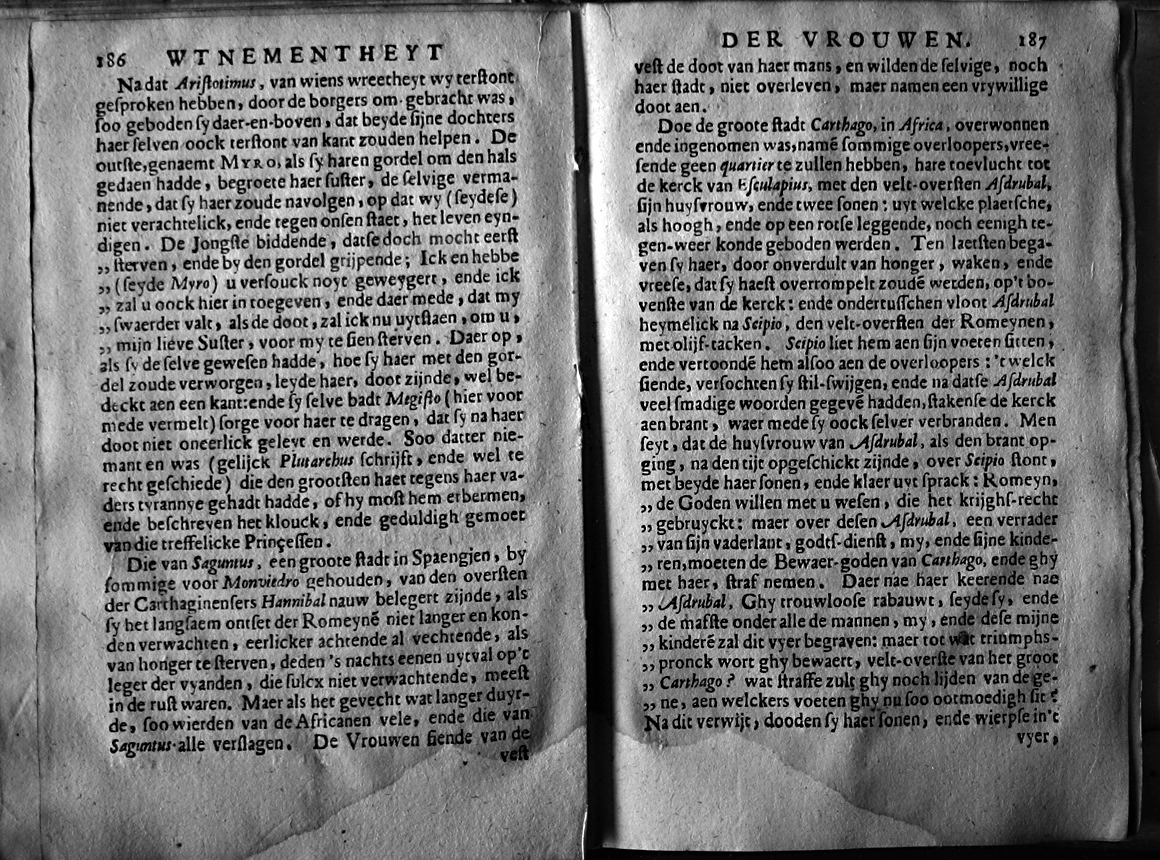 186 WTNEMENTHEYT
Na dat Ariſtotimus, van wiens wreetheyt wy terſtont
geſproken hebben, door de borgers om-gebracht was,
ſoo geboden ſy daer-en-boven, dat beyde ſijne dochters
haer ſelven oock terſtont van kant zouden helpen. De
outſte, genaemt MYRO, als ſy haren gordel om den hals
gedaen hadde, begroete haer ſuſter, de ſelvige verma-
nende, dat ſy haer zoude navolgen, op dat wy (ſeydeſe)
niet verachtelick, ende tegen onſen ſtaet, het leven eyn-
digen. De Jongſte biddende, datſe doch mocht eerſt
„ ſterven, ende by den gordel grijpende; Ick en hebbe
„ (ſeyde Myro) u verſouck noyt geweygert, ende ick
„ zal u oock hier in toegeven, ende daer mede, dat my
„ ſwaerder valt, als de doot, zal ick nu uytſtaen, om u,
„ mijn lieve Suſter, voor my te ſien ſterven. Daer op,
als ſy de ſelve geweſen hadde, hoe ſy haer met den gor-
del zoude verworgen, leyde haer, doot zijnde, wel be-
deckt aen een kant: ende ſy ſelve badt Megiſto (hier voor
mede vermelt) ſorge voor haer te dragen, dat ſy na haer
doot niet oneerlick geleyt en werde. Soo datter nie-
mant en was (gelijck Plutarchus ſchrijft, ende wel te
recht geſchiede) die den grootſten haet tegens haer va-
ders tyrannye gehadt hadde, of hy moſt hem erbermen,
ende beſchreyen het klouck, ende geduldigh gemoet
van die treffelicke Princeſſen.
Die van Saguntus, een groote ſtadt in Spaengjen, by
ſommige voor Monviedro gehouden, van den overſten
der Carthaginenſers Hannibal nauw belegert zijnde, als
ſy het langſaem ontſet der Romeynē niet langer en kon-
den verwachten, eerlicker achtende al vechtende, als
van honger te ſterven, deden 's nachts eenen uytval op't
leger der vyanden, die ſulcx niet verwachtende, meeſt
in de ruſt waren. Maer als het gevecht wat langer duyr-
de, ſoo wierden van de Africanen vele, ende die van
Saguntus alle verſlagen. De Vrouwen ſiende van de
veſt
DER VROUWEN. 187
veſt de doot van haer mans, en wilden de ſelvige, noch
haer ſtadt, niet overleven, maer namen een vrywillige
doot aen.
Doe de groote ſtadt Carthago, in Africa, overwonnen
ende ingenomen was, namē ſommige overloopers, vree-
ſende geen quartier te zullen hebben, hare toevlucht tot
de kerck van Eſculapius, met den velt-overſten Aſdrubal,
ſijn huyſvrouw, ende twee ſonen: uyt welcke plaetſche,
als hoogh, ende op een rotſe leggende, noch eenigh te-
gen-weer konde geboden werden. Ten laetſten bega-
ven ſy haer, door onverdult van honger, waken, ende
vreeſe, dat ſy haeſt overrompelt zoudē werden, op't bo-
venſte van de kerck: ende ondertuſſchen vloot Aſdrubal
heymelick na Scipio, den velt-overſten der Romeynen,
met olijf-tacken. Scipio liet hem aen ſijn voeten ſitten,
ende vertoondē hem alſoo aen de overloopers: 't welck
ſiende, verſochten ſy ſtil-ſwijgen, ende na datſe Aſdrubal
veel ſmadige woorden gegevē hadden, ſtakenſe de kerck
aen brant, waer mede ſy oock ſelver verbranden. Men
ſeyt, dat de huyſvrouw van Aſdrubal, als den brant op-
ging, na den tijt opgeſchickt zijnde, over Scipio ſtont,
met beyde haer ſonen, ende klaer uyt ſprack: Romeyn,
„ de Goden willen met u weſen, die het krijghſ-recht
„ gebruyckt: maer over deſen Aſdrubal, een verrader
„ van ſijn vaderlant, godtſ-dienſt, my, ende ſijne kinde-
„ ren, moeten de Bewaer-goden van Carthago, ende ghy
met haer, ſtraf nemen. Daer nae haer keerende nae
„ Aſdrubal, Ghy trouwlooſe rabauwt, ſeyde ſy, ende
„ de maſſte onder alle de mannen, my, ende deſe mijne
„ kinderē zal dit vyer begraven: maer tot wat triumphs-
„ pronck wort ghy bewaert, velt-overſte van het groot
„ Carthago? wat ſtraffe zult ghy noch lijden van de ge-
„ ne, aen welckers voeten ghy nu ſoo ootmoedigh ſit?
Na dit verwijt, dooden ſy haer ſonen, ende wierpſe in't
vyer,